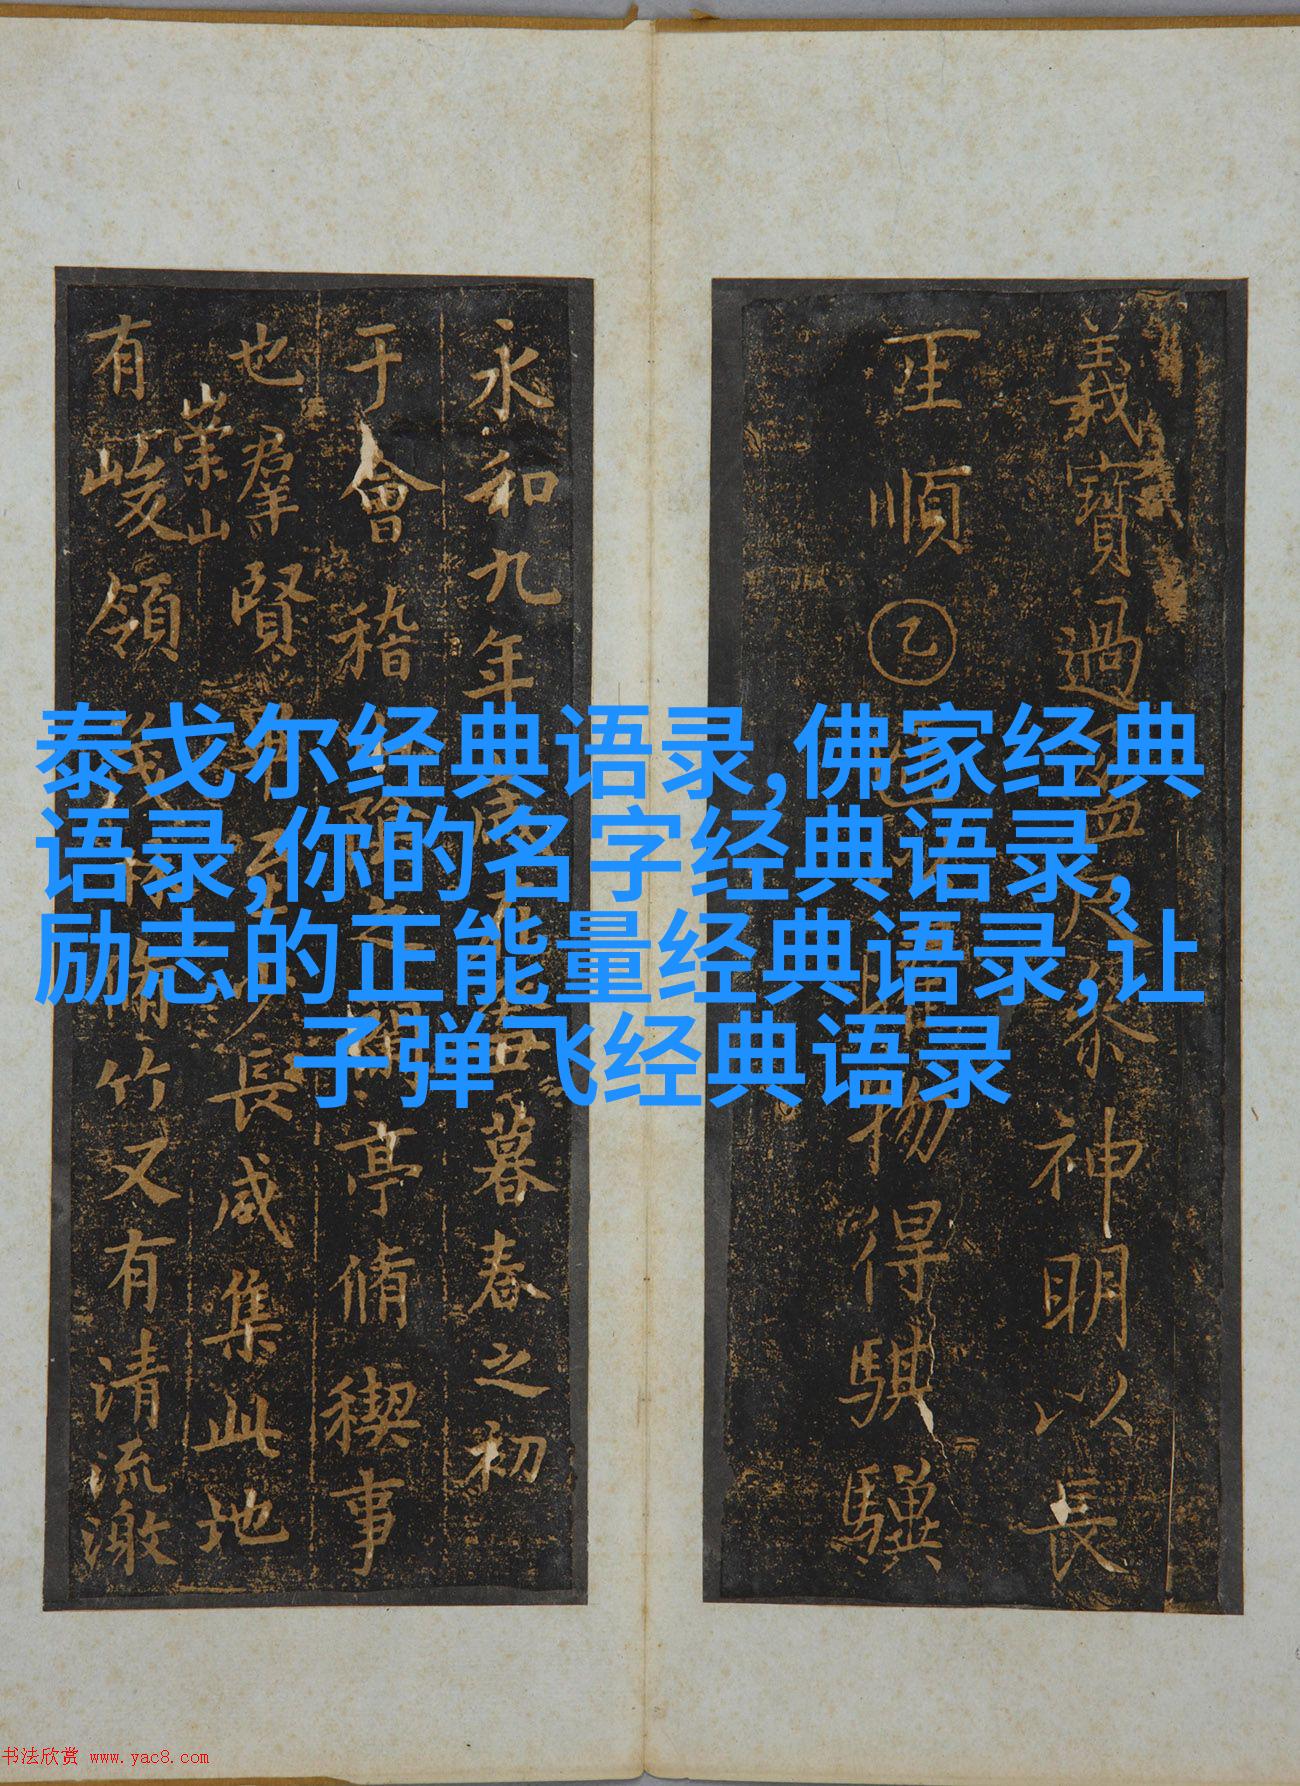 泰戈尔经典语录,佛家经典
语录,你的名字经典语录,
励志的正能量经典语录,让
子弹飞经典语录
義寶過尺黍神明以長
順乙物得騏驥
永和九年歲在癸丑暮春之初
于會稽山陰之蘭亭脩禊事
也羣賢畢至少長咸集此地
有崇山峻領茂林脩竹又有清流激
书法欣赏 www.yac8.com